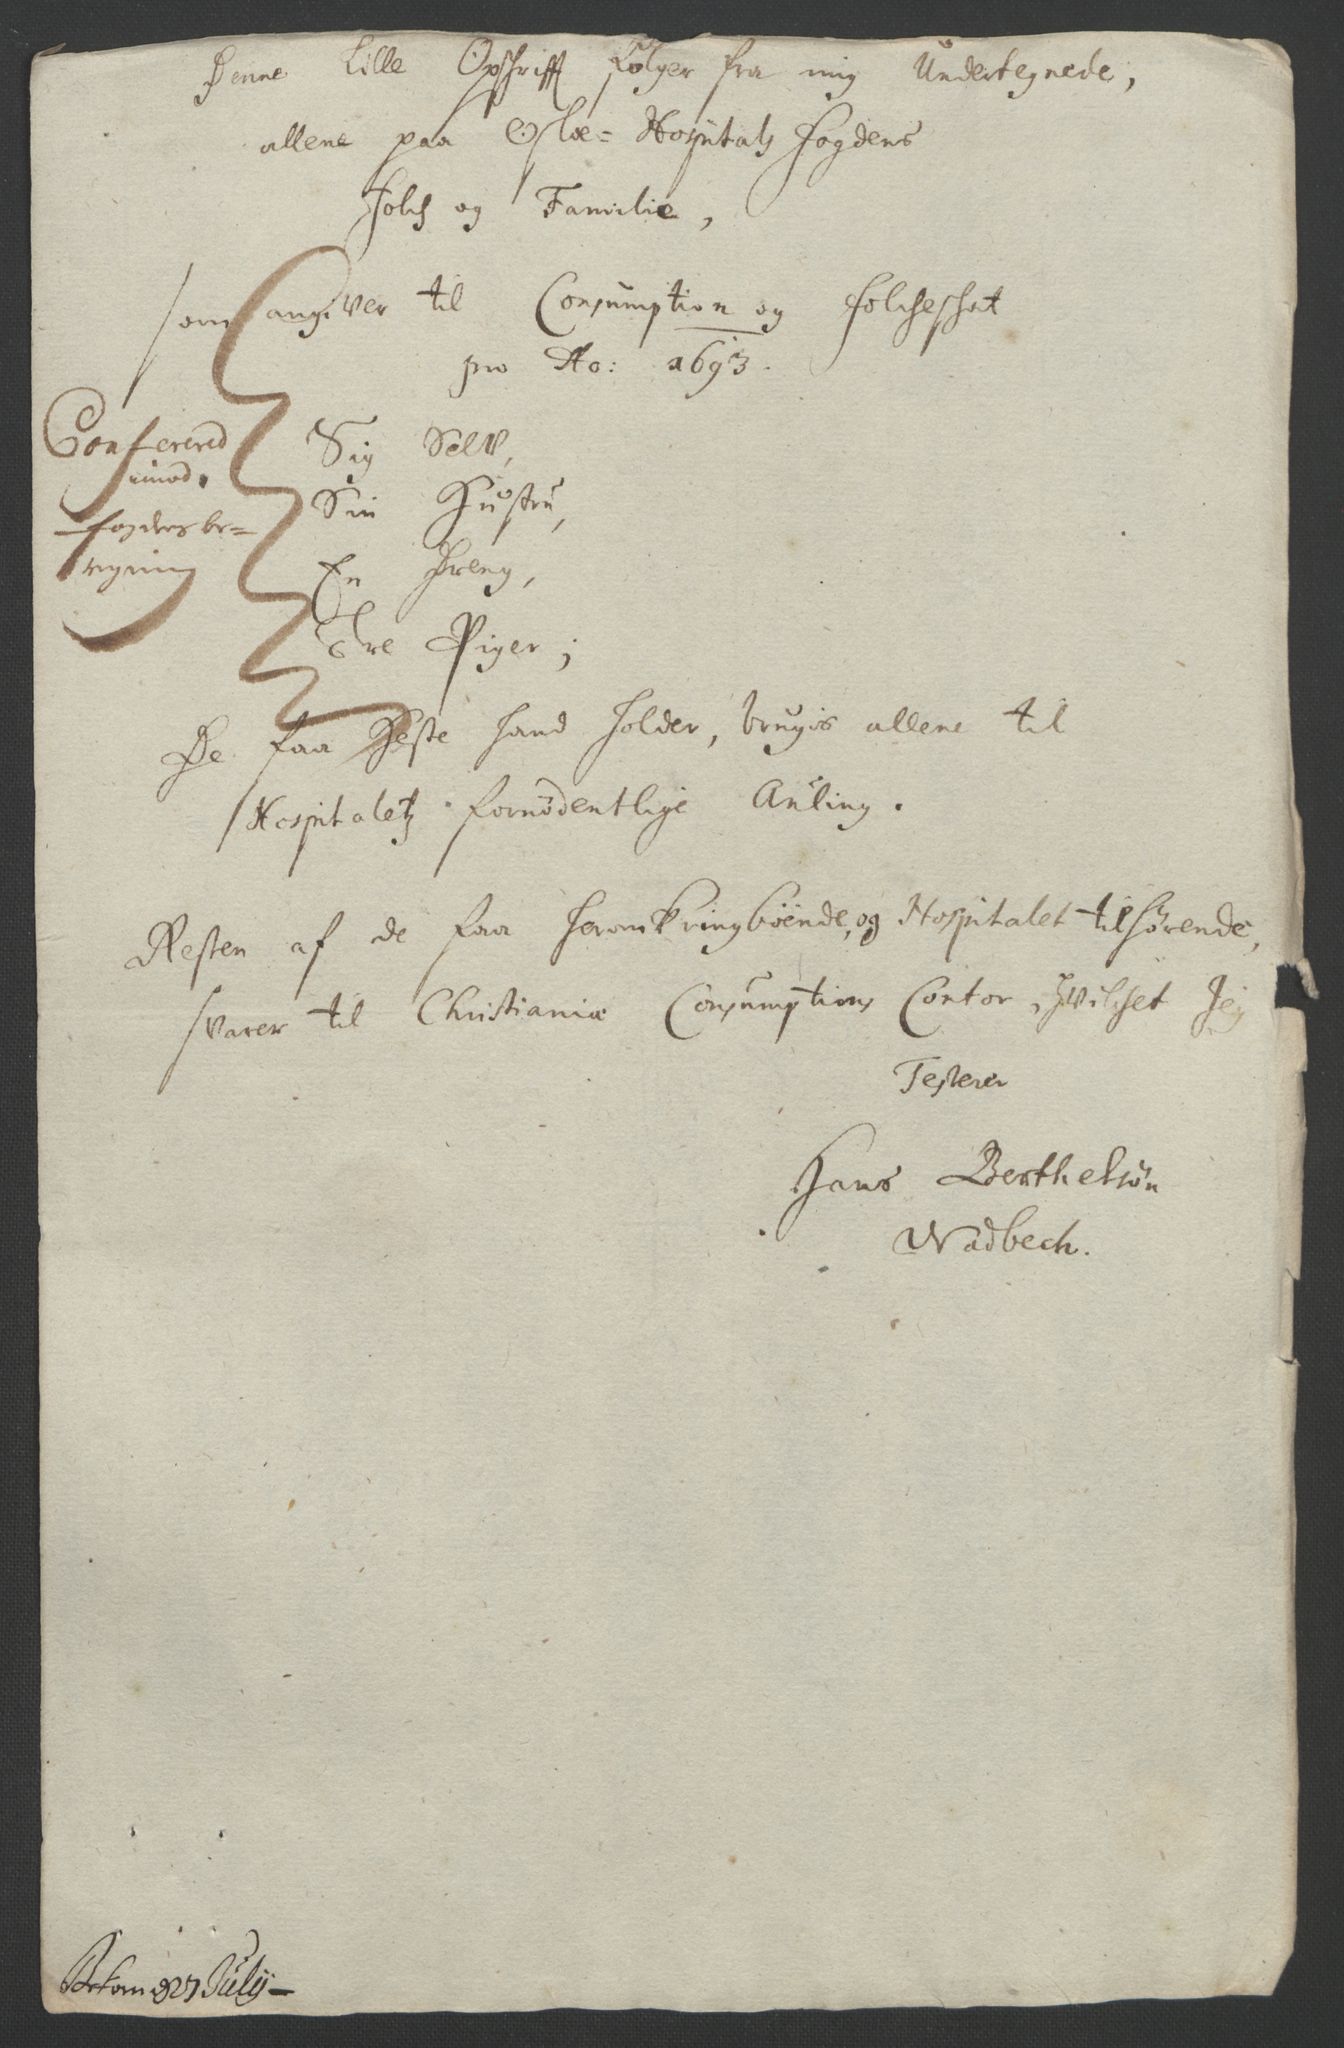 Denne Lille Opschrifft følger fra mig Undertegnede,
allene paa Osloe=Hospitals Fogdens
Folch og Familie,
som angiver til Consumption og folcheschat
pro Ao: 1693.
Conferered
imod
fogdens be=
regning
Sig Selv,
Sin Hustru,
En Dreng,
Tre Piger;
De faa Heste hand holder, brugis allene til
Hospitaletz fornødentlige Auling.
Resten af de faa heromkringboende, og Hospitalet tilhørende,
svarer til Christianiæ Consumptions Contor, hvilchet Jeg
Testerer
Hans Berthelsøn
Wadbech.
Bekom d 27 July